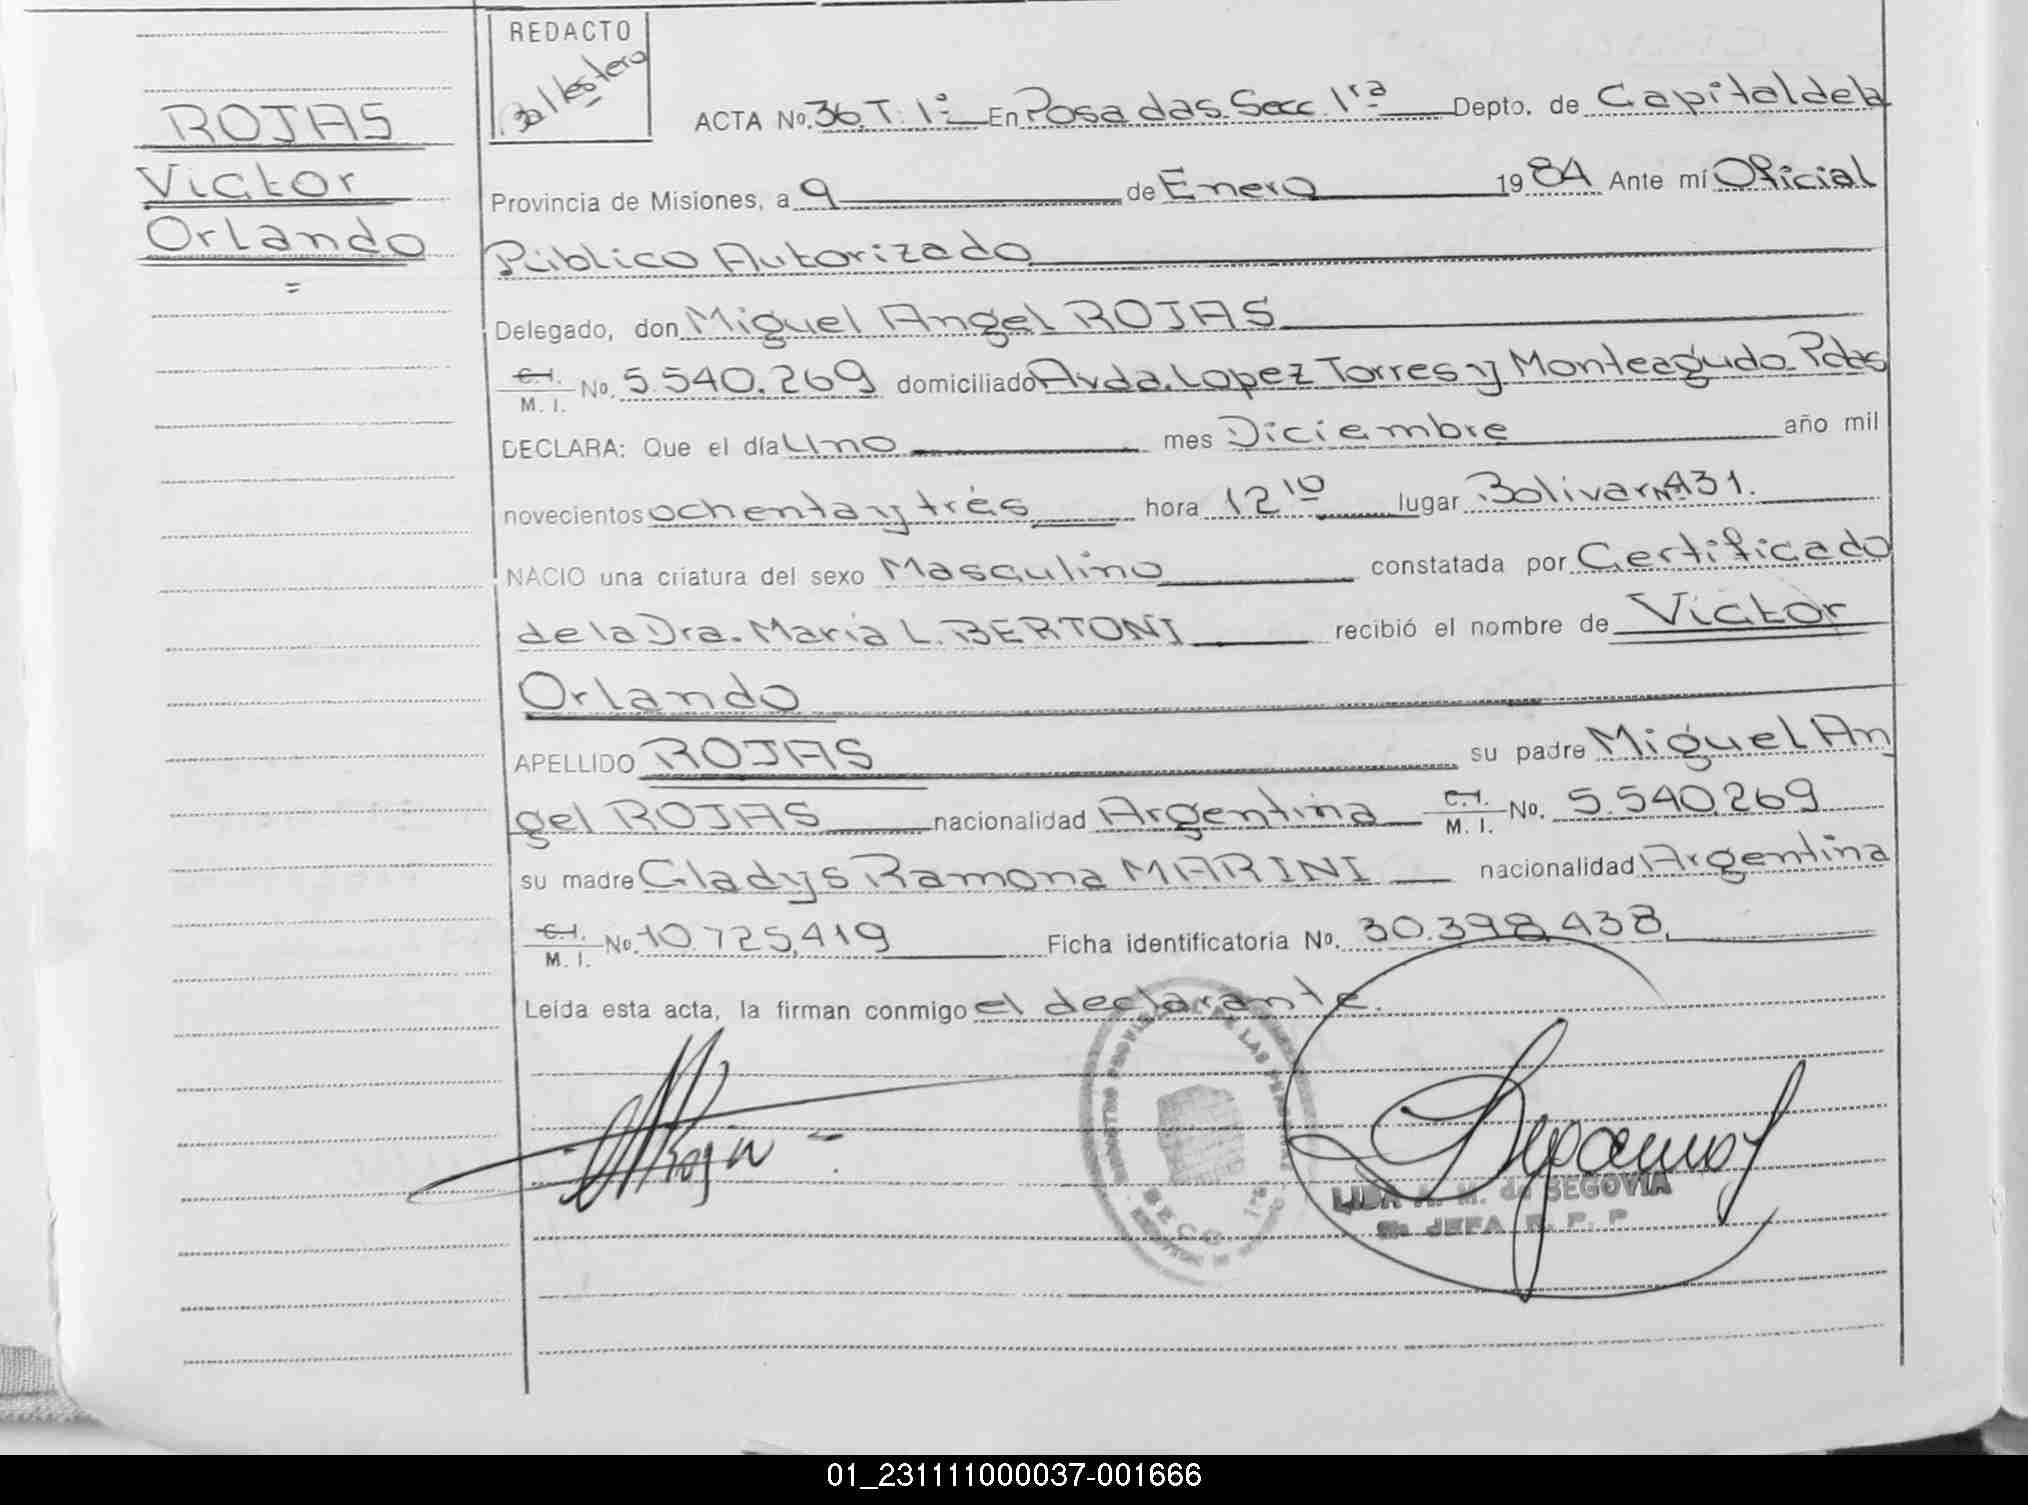 REDACTO
Ballestero
ROJAS
Victor
Orlando
=
ACTA No. 36. T: 1º En Posadas. Secc. 1ra Depto. de Capital de la
Provincia de Misiones, a 9 de Enero 1984 Ante mí Oficial
Público Autorizado
Delegado, don Miguel Angel ROJAS
C.I. / M. I. No. 5.540.269 domiciliado Avda. Lopez Torres y Monteagudo. Pdas
DECLARA: Que el día Uno mes Diciembre año mil
novecientos ochenta y trés hora 12 10 lugar Bolivar Nº 431.
NACIO una criatura del sexo Masculino constatada por Certificado
de la Dra. María L. BERTONI recibió el nombre de Victor
Orlando
APELLIDO ROJAS su padre Miguel An
gel ROJAS nacionalidad Argentina C.I. / M. I. No. 5.540.269
su madre Gladys Ramona MARINI nacionalidad Argentina
C.I. / M. I. No. 10.725.419 Ficha identificatoria No. 30.398.438.
Leída esta acta, la firman conmigo el declarante.
DE LAS
SECC.
de SEGOVIA
JEFA R. P. P
01_231111000037-001666